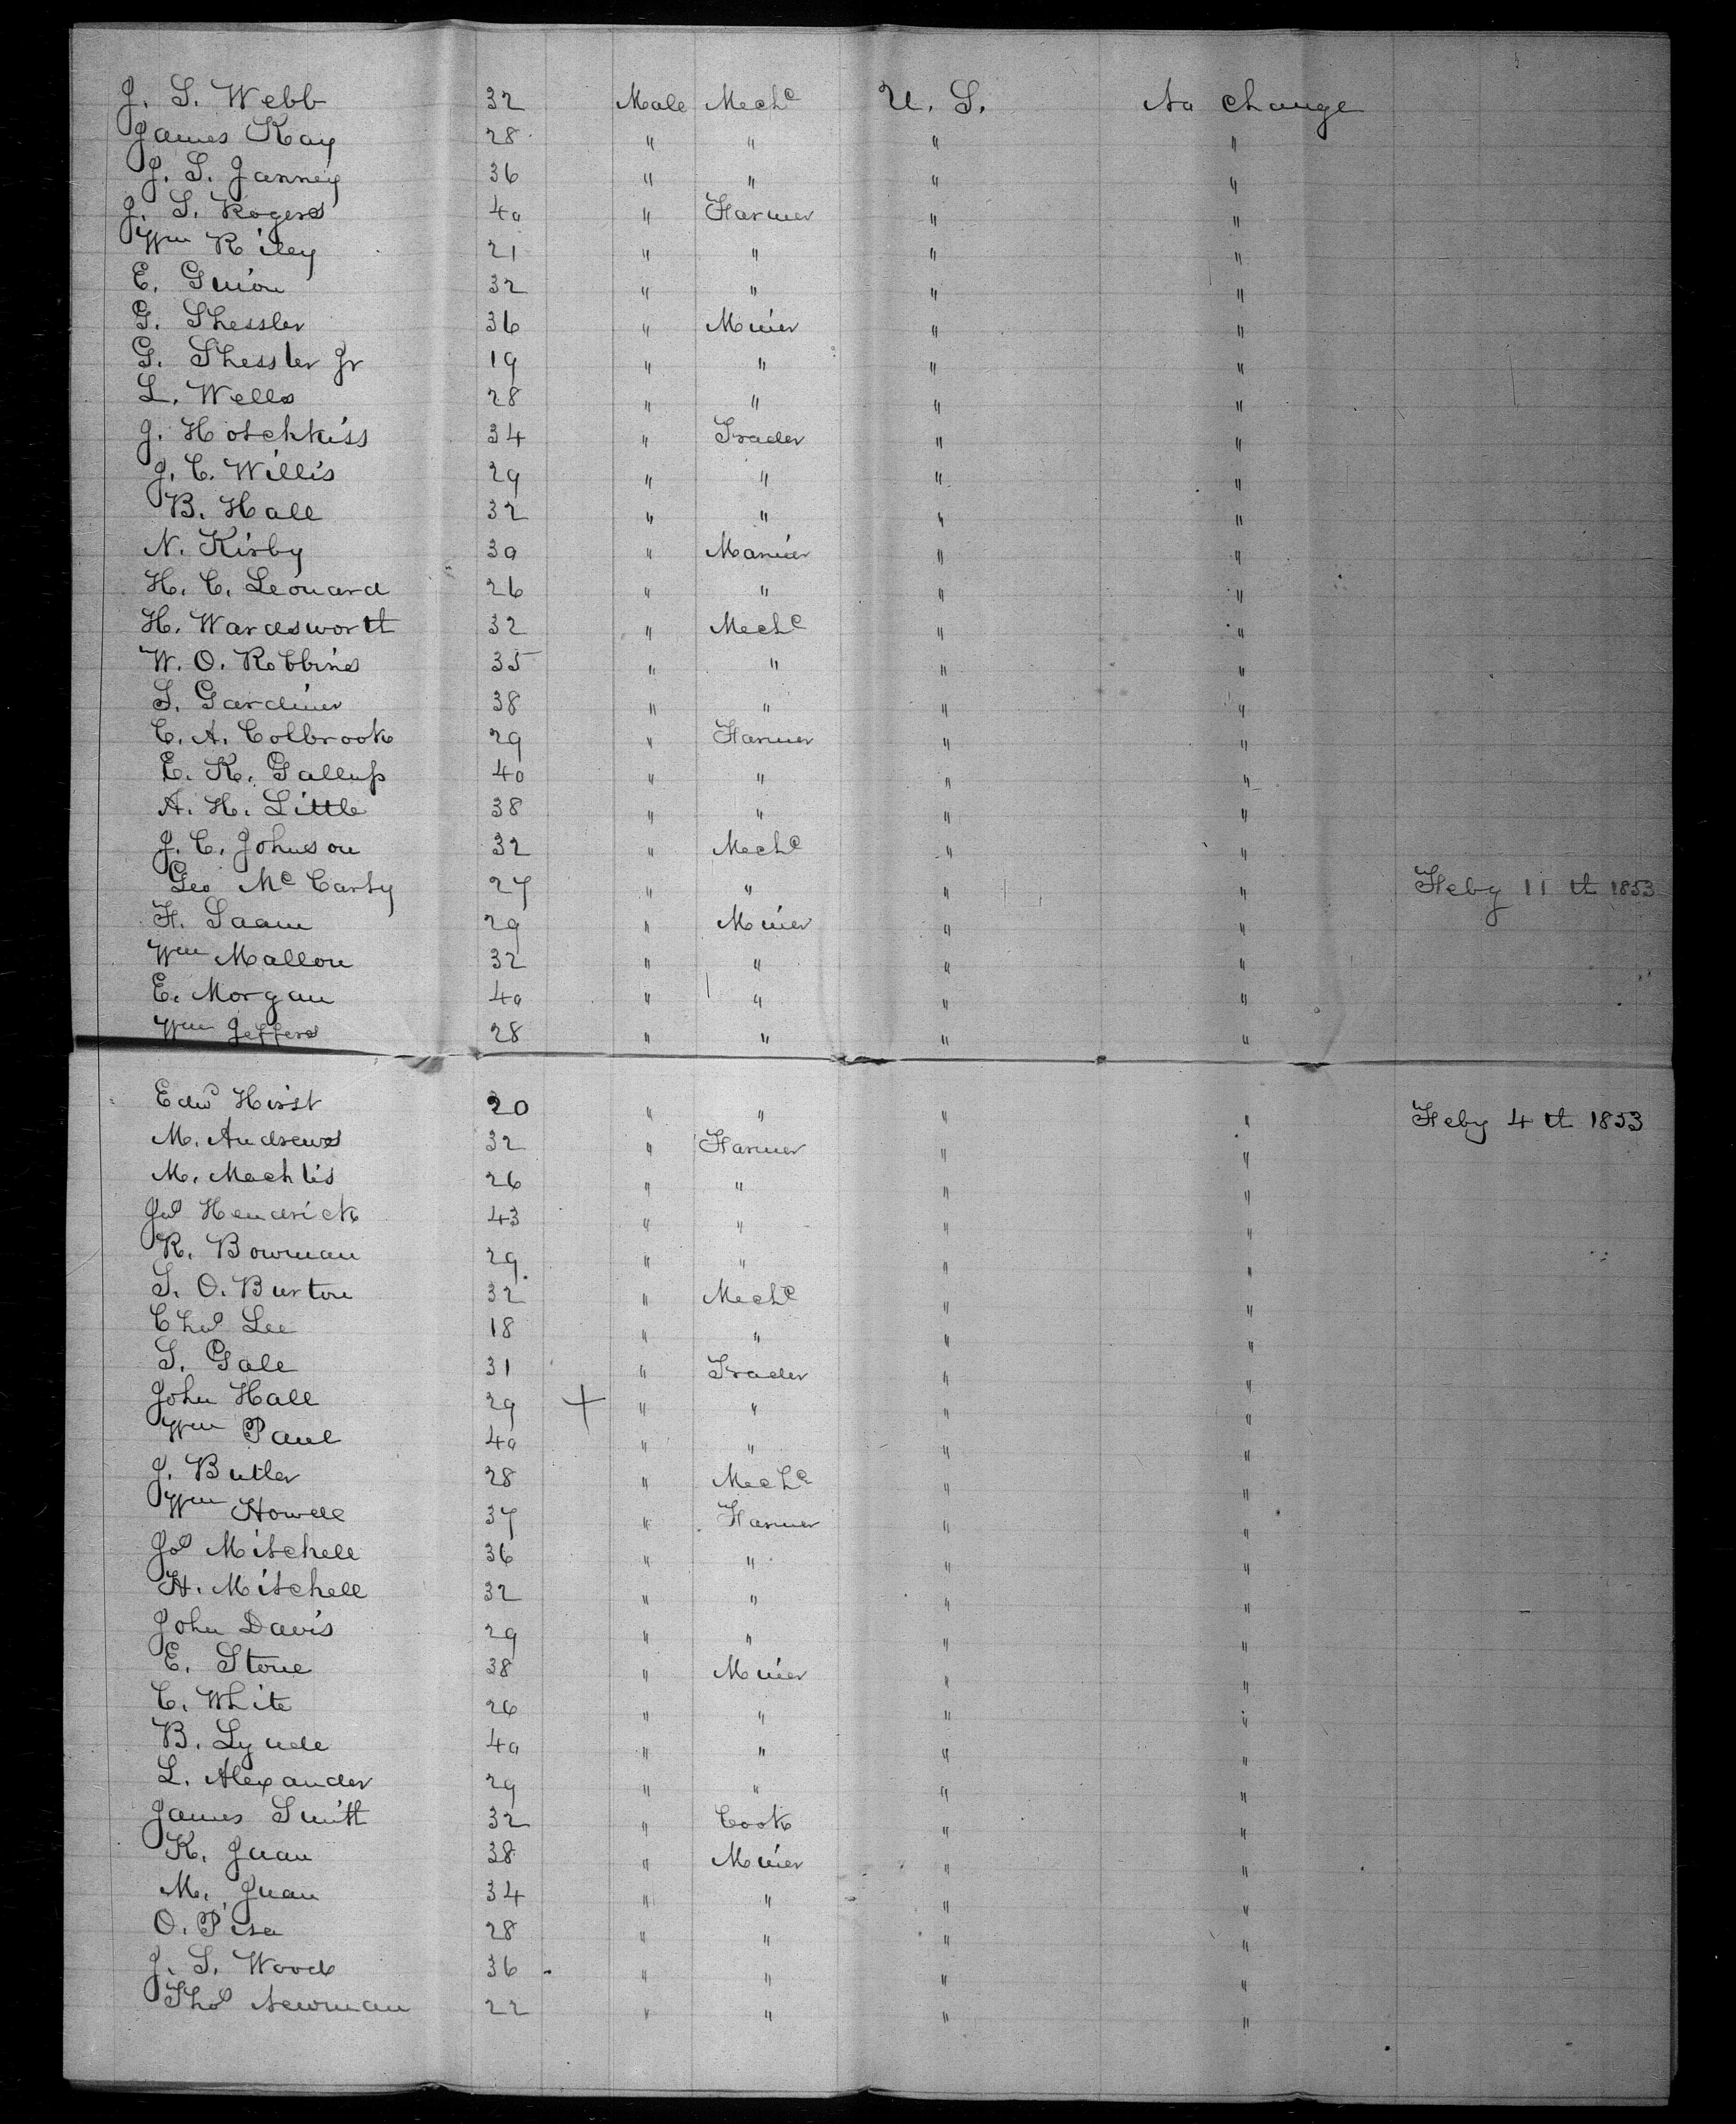 J. S. Webb 32 Male Mechc U. S. No Change
James Kay 28 " " " "
J. S. Janney 36 " " " "
J. S. Rogers 40 " Farmer " "
Wm Riley 21 " " " "
E. Guion 32 " " " "
G. Shessler 36 " Miner " "
G. Shessler Jr 19 " " " "
L. Wells 28 " " " "
J. Hotchkiss 34 " Trader " "
J. C. Willis 29 " " " "
B. Hall 32 " " " "
N. Kirby 30 " Marnier " "
H. C. Leonard 26 " " " "
H. Wardsworth 32 " Mechc " "
W. O. Robbins 35 " " " "
S. Gardiner 38 " " " "
C. A. Colbrook 29 " Farmer " "
E. K. Gallup 40 " " " "
A. H. Little 38 " " " "
J. C. Johnson 32 " Mechc " "
Geo McCarty 27 " " " " Feby 11th 1853
F. Saam 29 " Miner " "
Wm Mallon 32 " " " "
E. Morgan 40 " " " "
Wm Jeffers 28 " " " "
Edwd Hirst 20 " " " " Feby 4th 1853
M. Andrews 32 " Farmer " "
M. Mechlis 26 " " " "
Jno Hendrick 43 " " " "
R. Bowman 29 " " " "
S. O. Burton 32 " Mechc " "
Chas Lee 18 " " " "
S. Gale 31 " Trader " "
John Hall 29 + " " " "
Wm Paul 40 " " " "
J. Butler 28 " Mechc " "
Wm Howell 37 " Farmer " "
Jos Mitchell 36 " " " "
H. Mitchell 32 " " " "
John Davis 29 " " " "
E. Stone 38 " Miner " "
C. White 26 " " " "
B. Lynde 40 " " " "
L. Alexander 29 " " " "
James Smith 32 " Cook " "
K. Juan 38 " Miner " "
M. Juan 34 " " " "
O. Pisa 28 " " " "
J. S. Wood 36 " " " "
Thos Newman 22 " " " "